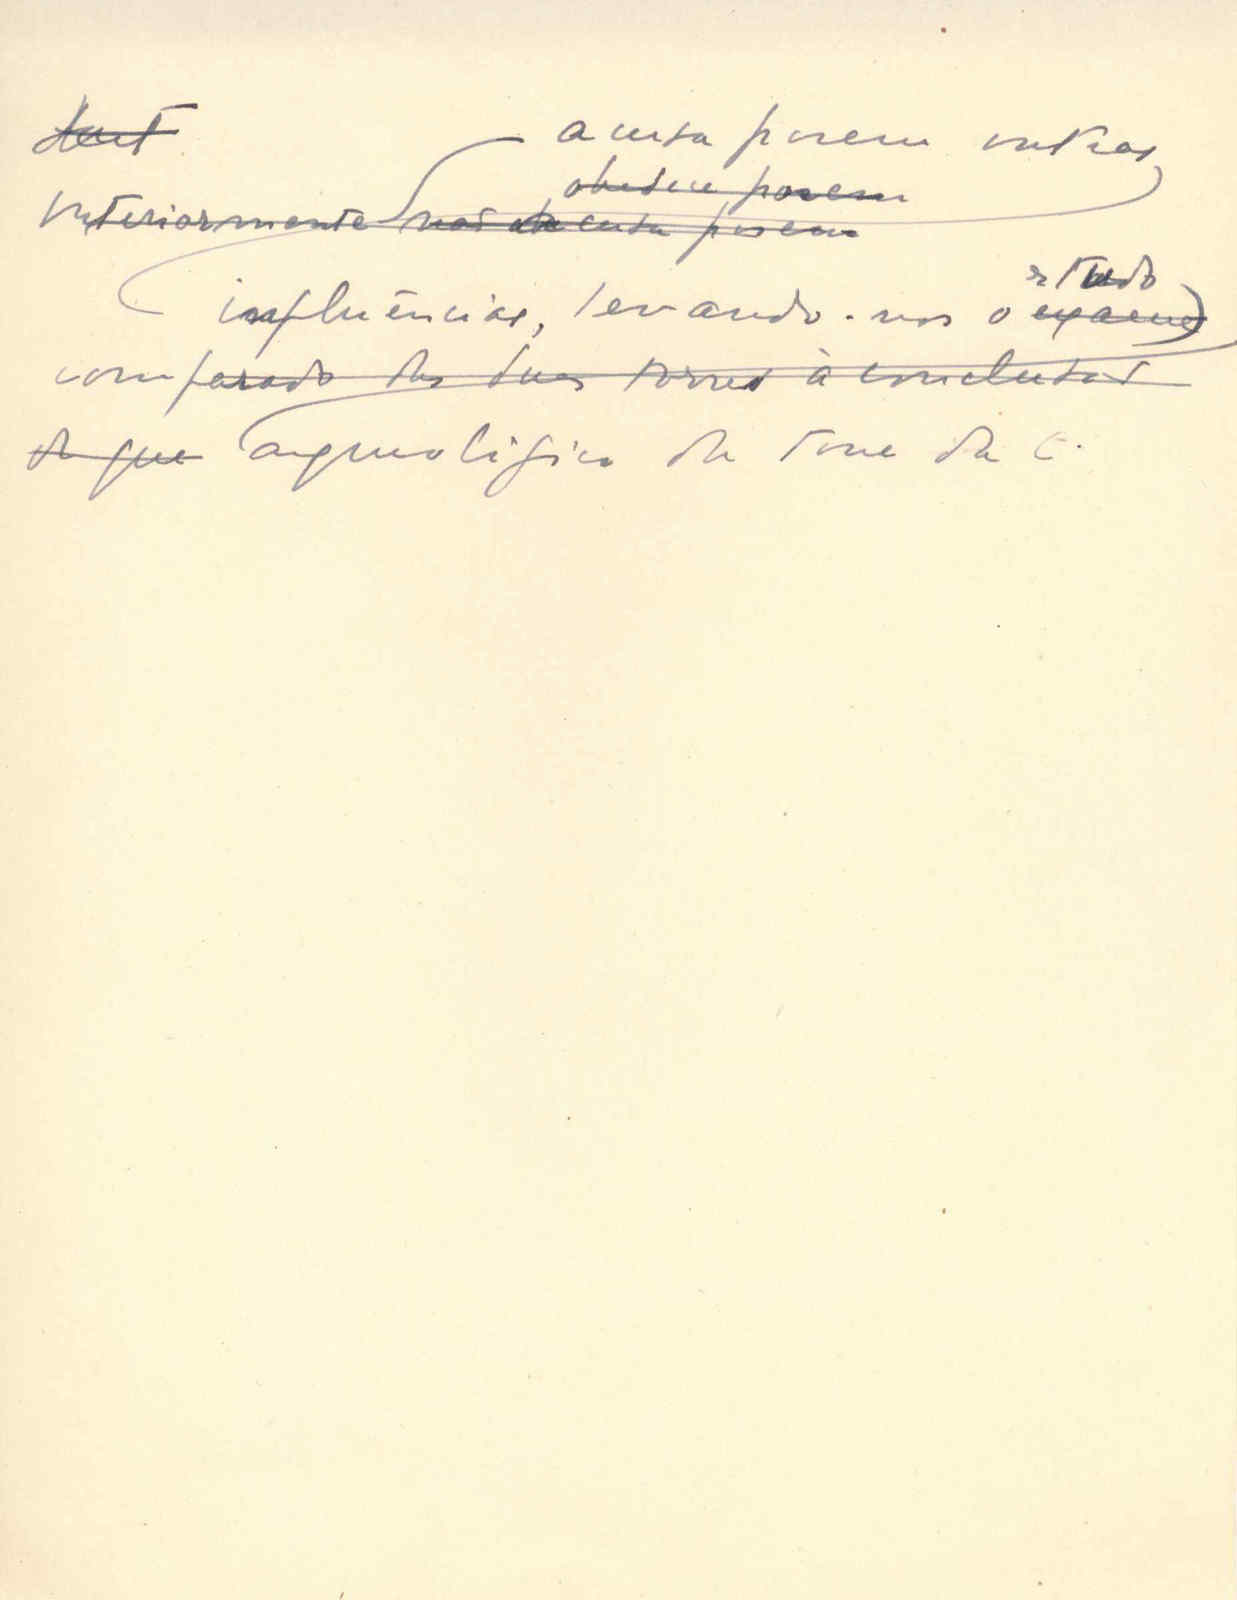 acusa porem outras
obedece porem
interiormente não acusa porem
estudo
influências, levando-nos o exame
comparado das duas torres à conclusão
de que arqueológico da torre da C.